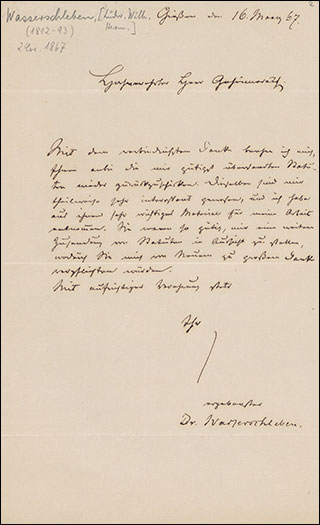 Wasserschleben, [Ludw. Wilh. Herm.]
(1812-93)
2 Br. 1867
Gießen den 16. März 67.
Hochverehrter Herr Geheimerath.
Mit dem verbindlichsten Dank beehre ich mich,
Ihnen anbei die mir gütigst übersandten Statu-
ten wieder zurückzuschicken. Dieselben sind mir
theilweise sehr interessant gewesen, und ich habe
aus ihnen sehr wichtige Notizen für meine Arbeit
entnommen. Sie waren so gütig, mir eine weitere
Zusendung von Statuten in Aussicht zu stellen,
wodurch Sie mich von Neuem zu großem Dank
verpflichten würden.
Mit aufrichtiger Verehrung stets
Ihr
ergebenster
Dr. Wasserschleben.